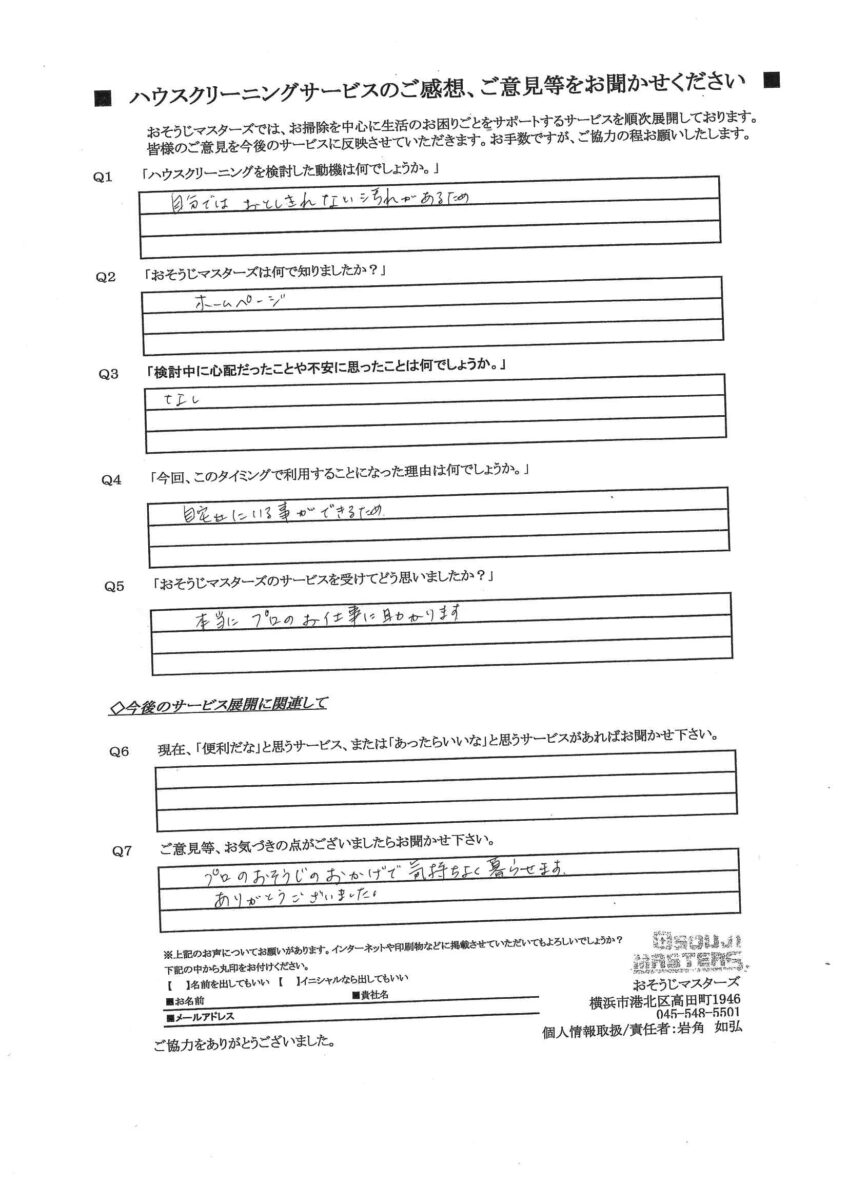 ■ ハウスクリーニングサービスのご感想、ご意見等をお聞かせください ■
おそうじマスターズでは、お掃除を中心に生活のお困りごとをサポートするサービスを順次展開しております。
皆様のご意見を今後のサービスに反映させていただきます。お手数ですが、ご協力の程お願いしたします。
Q1 「ハウスクリーニングを検討した動機は何でしょうか。」
自分では おとしきれない汚れがあるため
Q2 「おそうじマスターズは何で知りましたか？」
ホームページ
Q3 「検討中に心配だったことや不安に思ったことは何でしょうか。」
なし
Q4 「今回、このタイミングで利用することになった理由は何でしょうか。」
自宅にいる事ができるため
Q5 「おそうじマスターズのサービスを受けてどう思いましたか？」
本当に プロのお仕事に助かります
◇今後のサービス展開に関連して
Q6 現在、「便利だな」と思うサービス、または「あったらいいな」と思うサービスがあればお聞かせ下さい。
Q7 ご意見等、お気づきの点がございましたらお聞かせ下さい。
プロのおそうじのおかげで 気持ちよく 暮らせます
ありがとうございました。
※上記のお声についてお願いがあります。インターネットや印刷物などに掲載させていただいてもよろしいでしょうか？
下記の中から丸印をお付けください。
【 】名前を出してもいい 【 】イニシャルなら出してもいい
■お名前 ■貴社名
■メールアドレス
ご協力をありがとうございました。
OSOUJI
MASTERS
おそうじマスターズ
横浜市港北区高田町1946
045-548-5501
個人情報取扱/責任者：岩角 如弘